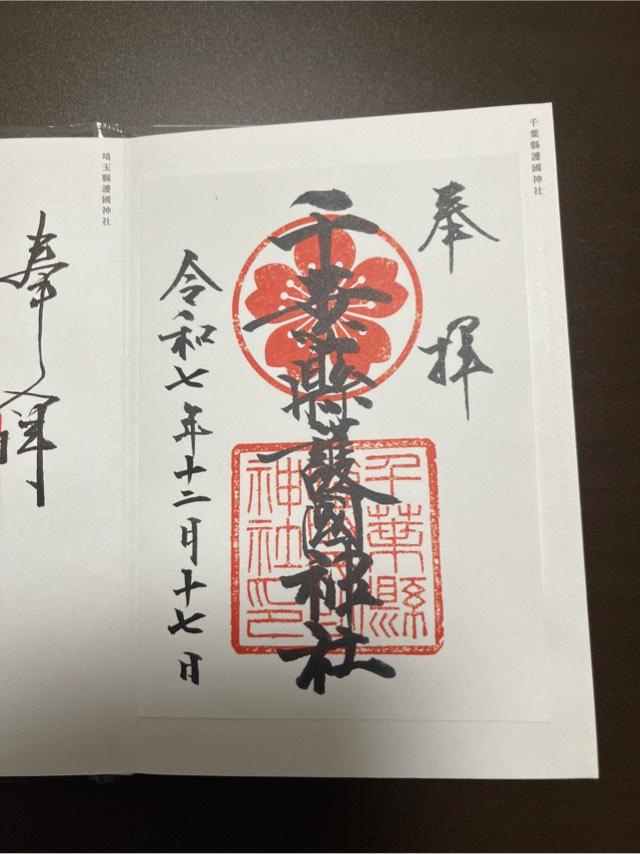 千葉縣護國神社
奉拝
千葉縣護國神社
令和七年十二月十七日
千葉縣
神社印
埼玉縣護國神社
奉拝